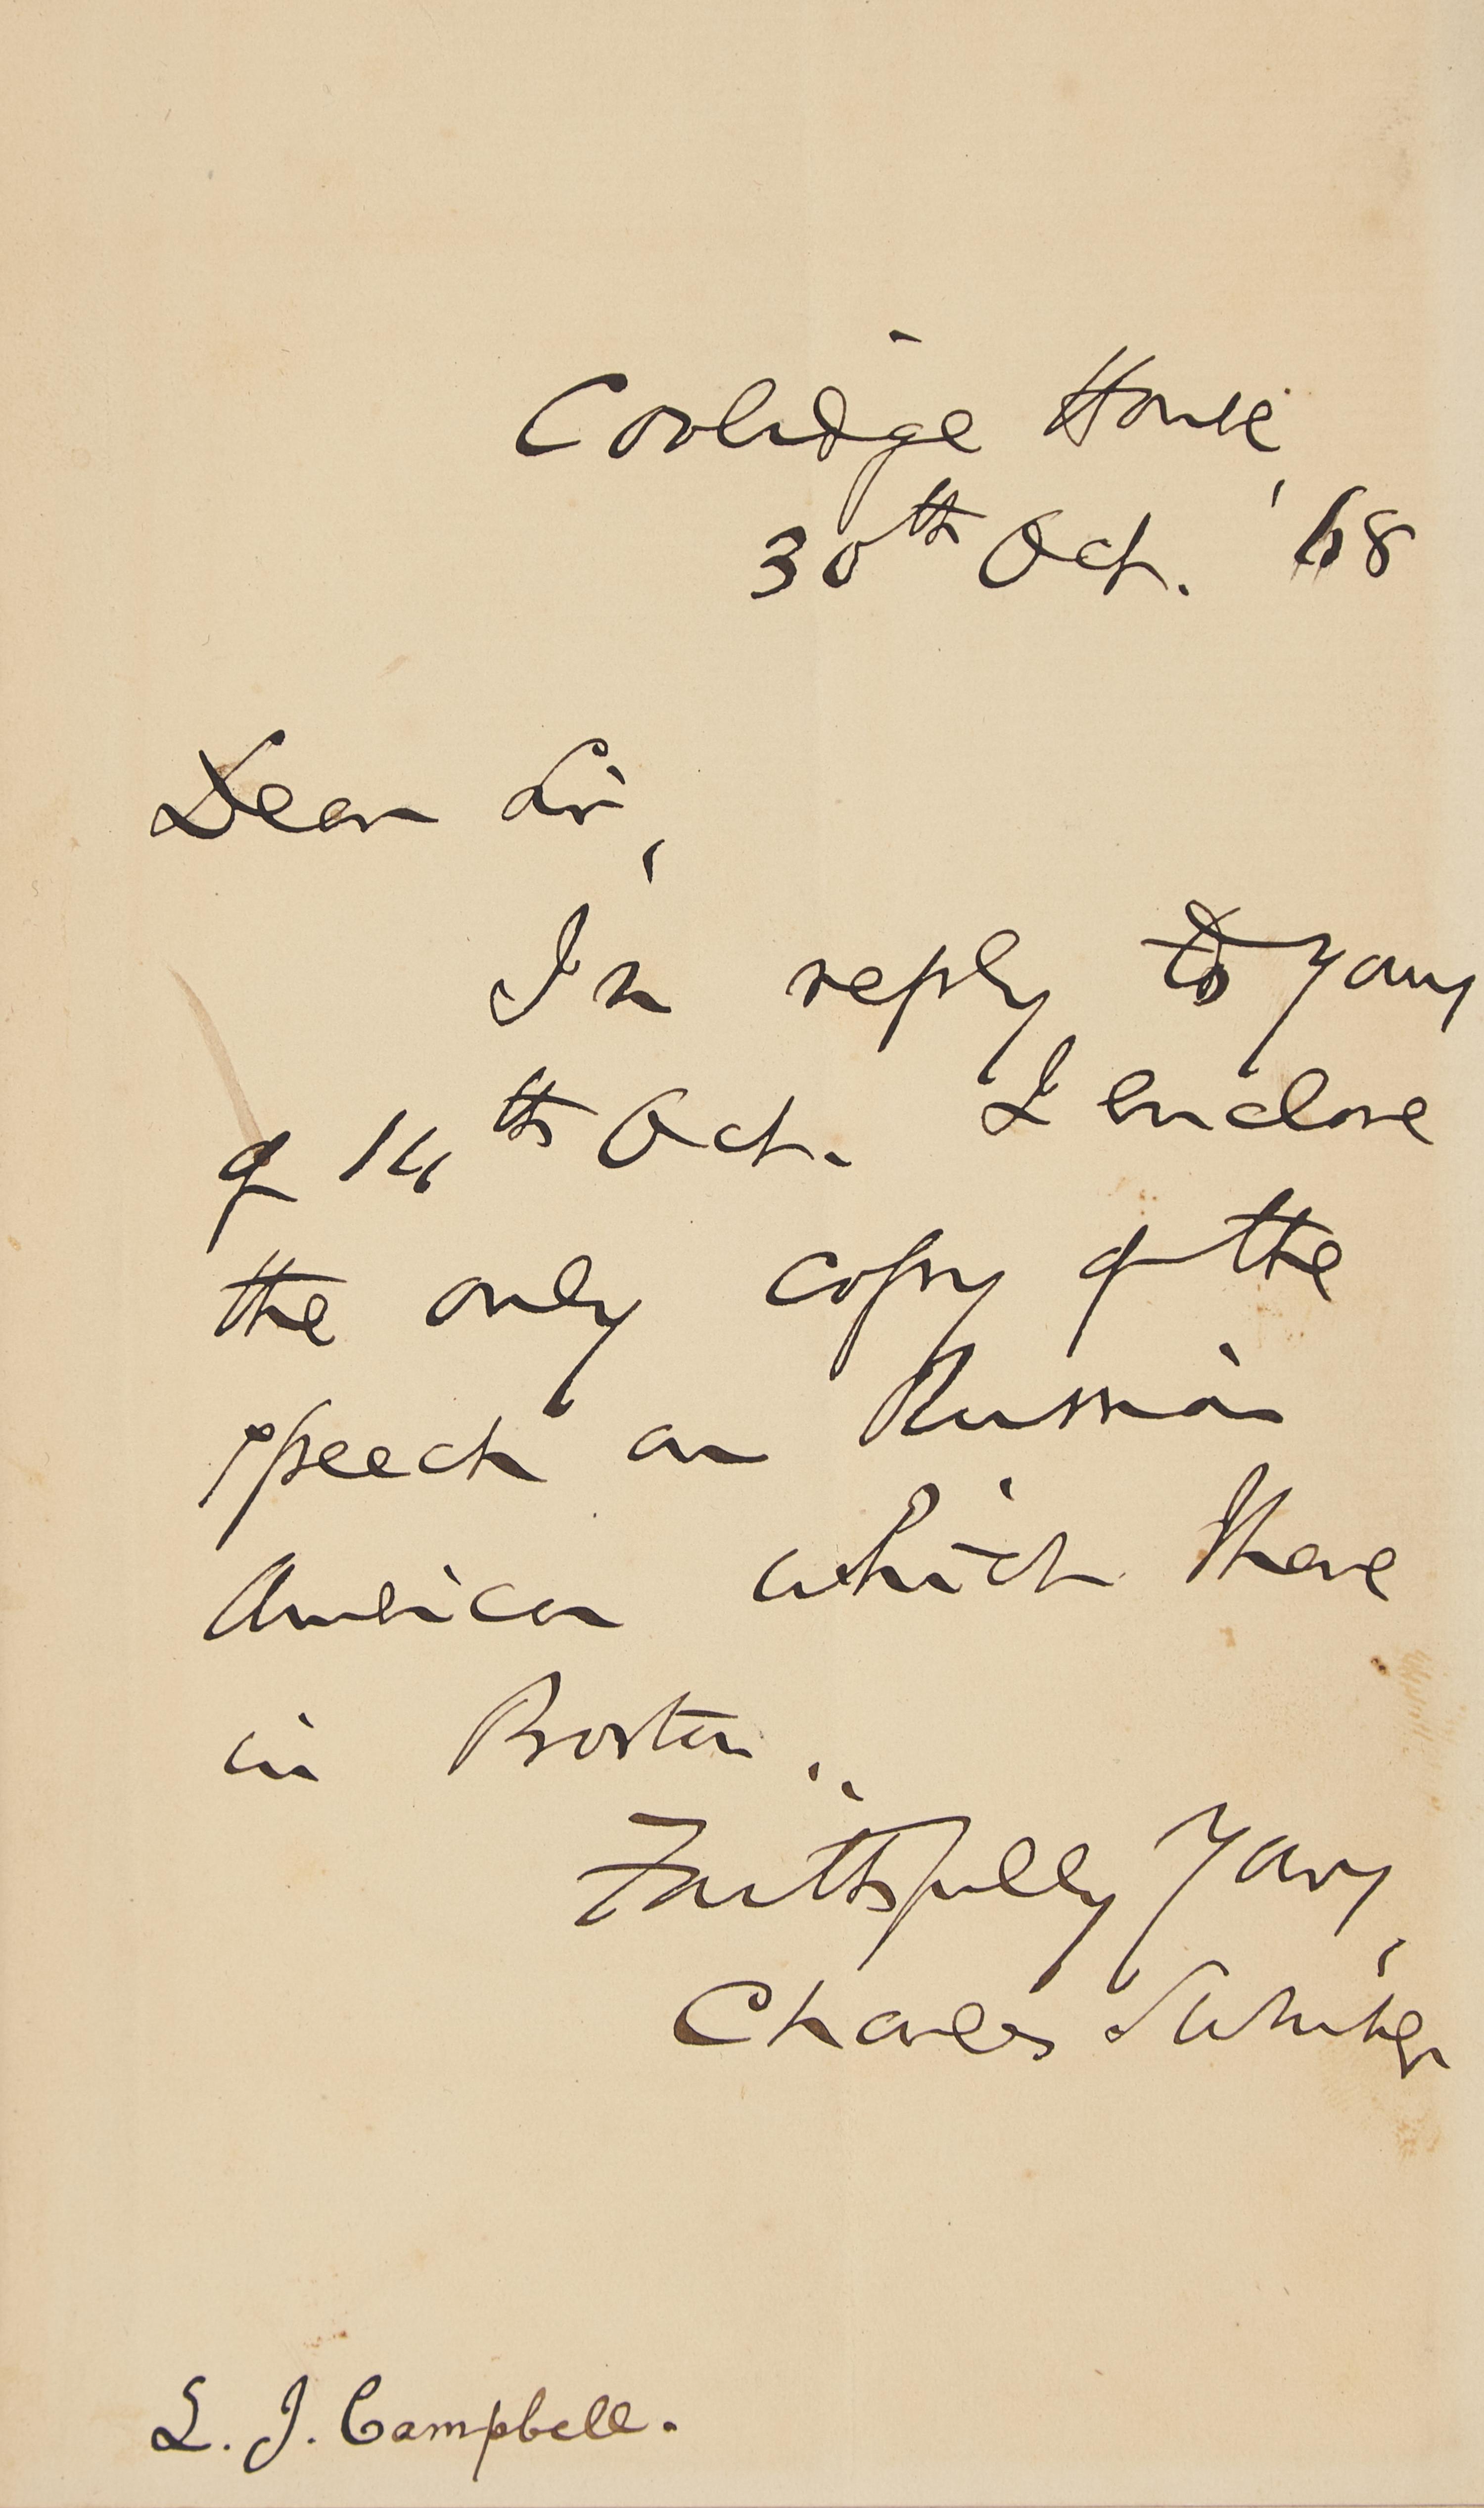 Coolidge House
30th Oct. '68
Dear Sir,
In reply to yours
of 14th Oct. I enclose
the only copy of the
speech on Russian
America which I have
in Boston.
Faithfully Yours,
Charles Sumner
L. J. Campbell.